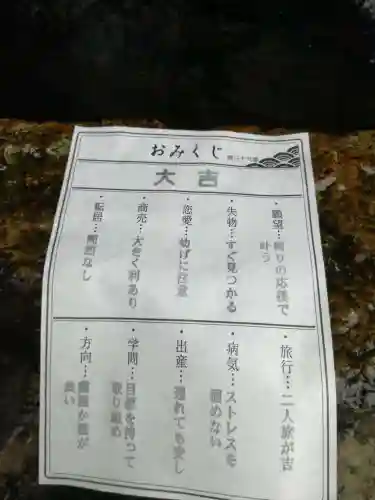 おみくじ
大吉
・願望…周りの応援で
叶う
・失物…すぐ見つかる
・恋愛…妨げに注意
・商売…大きく利あり
・転居…問題なし
・旅行…二人旅が吉
・病気…ストレスを
溜めない
・出産…遅れても安し
・学問…目標を持って
取り組め
・方向…
良い